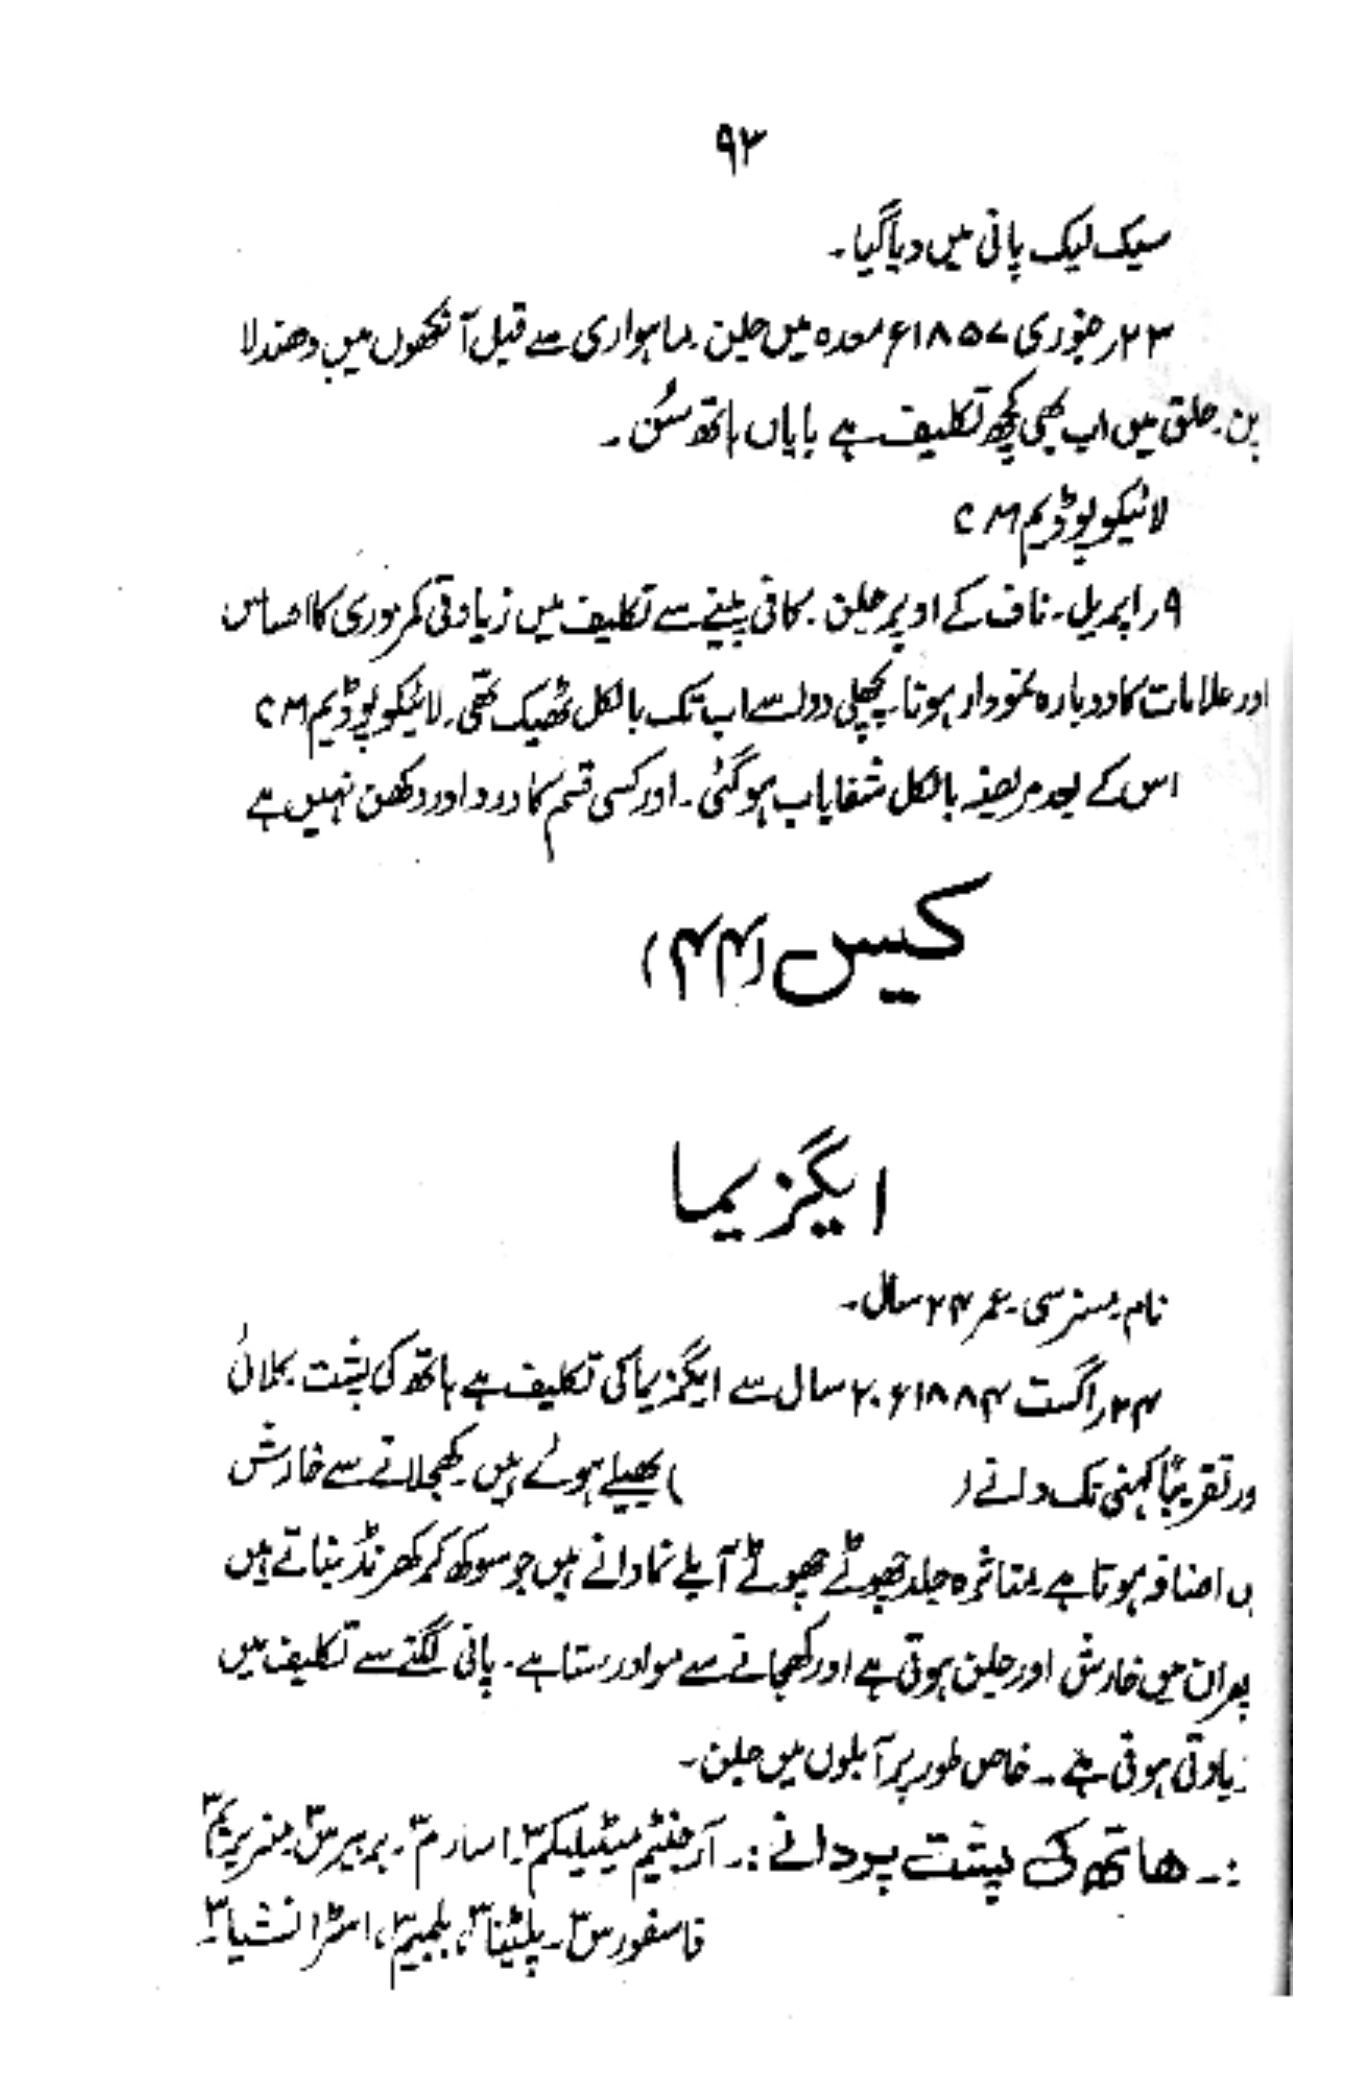 ۹۳
سیک لیک پانی میں دیا گیا۔
۲۳ر جنوری ۱۸۵۷ء معدہ میں جلن۔ ماہواری سے قبل آنکھوں میں دھندلا
پن۔ حلق میں اب بھی کچھ تکلیف ہے بایاں ہاتھ سُن۔
لائیکوپوڈیم CM
۹ر اپریل۔ ناف کے اوپر جلن۔ کافی پینے سے تکلیف میں زیادتی کمزوری کا احساس
اور علامات کا دوبارہ نمودار ہونا۔ پچھلی دوا سے اب تک بالکل ٹھیک تھی۔ لائیکوپوڈیم CM
اس کے بعد مریضہ بالکل شفایاب ہوگئی۔ اور کسی قسم کا درد اور دکھن نہیں ہے
کیس (۴۴)
ایگزیما
نام۔ مسز سی۔ عمر ۲۴ سال۔
۲۴ر اگست ۱۸۸۴ء ۲۰ سال سے ایگزیما کی تکلیف ہے ہاتھ کی پشت۔ کلائی
ور تقریباً کہنی تک دانے ( ) پھیلے ہوئے ہیں۔ کھجلانے سے خارش
ں اضافہ ہوتا ہے۔ متاثرہ جلد چھوٹے چھوٹے آبلے نما دانے ہیں جو سوکھ کر کھرنڈ بناتے ہیں
پھر ان میں خارش اور جلن ہوتی ہے اور کھجانے سے مواد رستا ہے۔ پانی لگنے سے تکلیف میں
زیادتی ہوتی ہے۔ خاص طور پر آبلوں میں جلن۔
:۔ ھاتھ کی پشت پر دانے :۔ آرجنٹیم میٹیلیکم ۳۔ اسارم ۳۔ بربیرس ۳۔ میزیریم ۳
فاسفورس ۳۔ پلیٹینا ۳، پلمبم ۳، اسٹرانشیا ۳۔